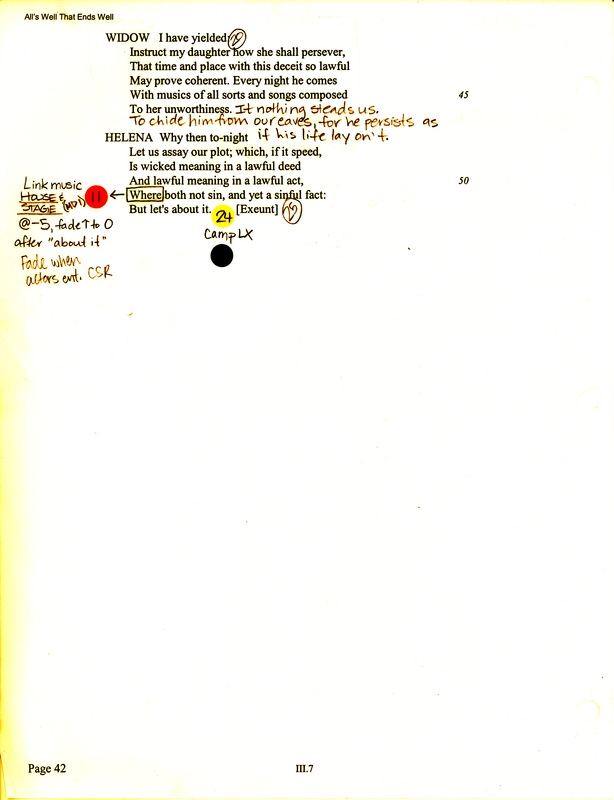 All's Well That Ends Well
WIDOW I have yielded:
Instruct my daughter how she shall persever,
That time and place with this deceit so lawful
May prove coherent. Every night he comes
With musics of all sorts and songs composed 45
To her unworthiness. It nothing steads us.
To chide him from our eaves, for he persists as
HELENA Why then to-night if his life lay on't.
Let us assay our plot; which, if it speed,
Is wicked meaning in a lawful deed
And lawful meaning in a lawful act, 50
Where both not sin, and yet a sinful fact:
But let's about it. 24 [Exeunt]
Camp LX
Link music
HOUSE &
STAGE (MD1) 11 ←
@-5, fade↑to 0
after "about it"
Fade when
actors ent. CSR
Page 42 III.7